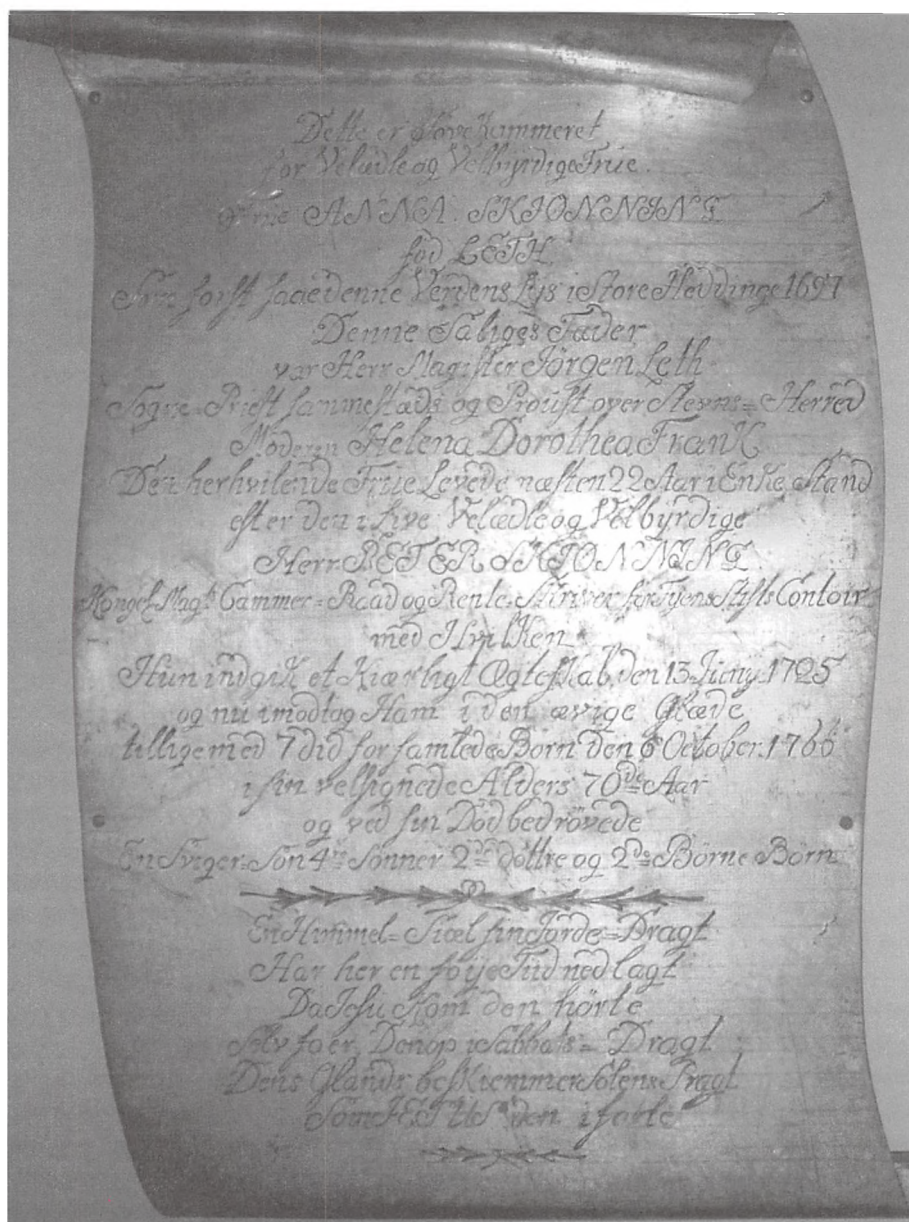 Dette er StöveKammeret
for Velædle og VelbyrdigeFrue
Frue ANNA SKIONNING
fód LETH
Som först saae denne Verdens Lys i Store Heddinge 1697
Denne Saliges Fader
var Herr Magister Jörgen Leth
Sogne=Præst sammestæds og Proust over Stevns=Herred
Moderen Helena Dorothea Frank
Den herhvilende Frue Levede næsten 22 Aar i Enke Stand
efter den i Live Velædle og Velbyrdige
Herr PETER SKIONNING
Kongel Magts Cammer=Raad og Rente Skriver for Fyens Stifts Contoir
med Hvilken
Hun indgik et Kiærligt Ægteskab den 13 Juny 1725
og nu imodtog Ham i den ævige Glæde
tillige med 7 did for samlede Börn den 6 October 1766
i sin velsignede Alders 70de Aar
og ved sin Död bedrövede
En Sviger Sön 4re Sönner 2de döttre og 2de Börne Börn
En Himmel=Siæl sin Jorde=Dragt
Har her en föije Tiid ned lagt
Da Jesu Kom den hörte
Selv faaer Den op i Sabbats=Dragt
Dens Glands beskiemmer Solens Pragt
Som JESUS den i förte